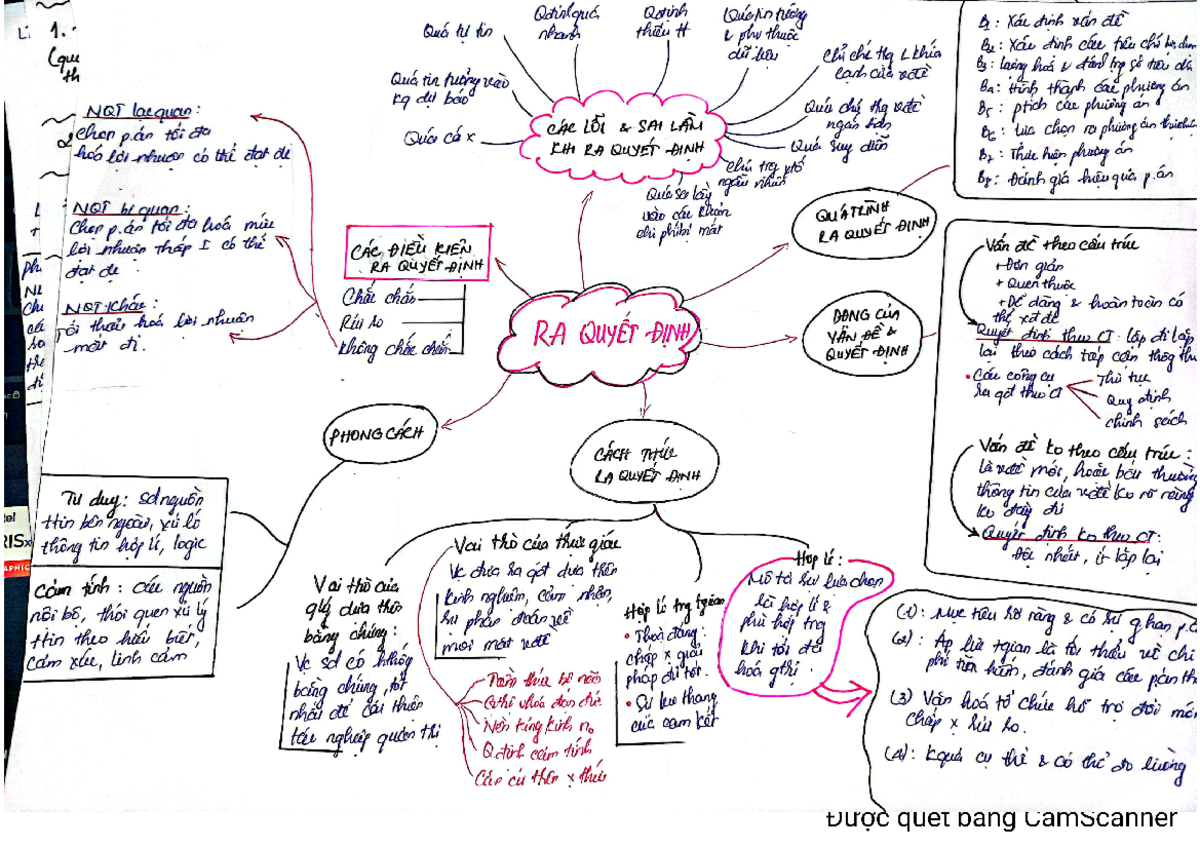 1.
NQT lạc quan:
Chọn p.án tối đa
hoá lợi nhuận có thể đạt đc
NQT bi quan:
Chọn p.án tối đa hoá mức
lợi nhuận thấp I có thể
đạt đc
NQT khác:
tối thiểu hoá lợi nhuận
mất đi.
Quá tự tin
Qđịnh quá
nhanh
Qđịnh
thiếu tt
Quá tin tưởng
& phụ thuộc
dữ liệu
Chỉ chú trg 1 khía
cạnh của vđề
Quá tin tưởng vào
kq dự báo
Quá chú trg vđề
ngắn hạn
Quá cá x
Quá suy diễn
Chú trg ytố
ngẫu nhiên
Quá sa lầy
vào các khoản
chi phí bị mất
CÁC LỖI & SAI LẦM
KHI RA QUYẾT ĐỊNH
B1: Xác định vấn đề
B2: Xác định các tiêu chí
B3: lượng hoá & đánh trg số tiêu chí
B4: Hình thành các phương án
B5: ptích các phương án
B6: Lựa chọn ra phương án
B7: Thực hiện phương án
B8: Đánh giá hiệu quả p.án
QUÁ TRÌNH
RA QUYẾT ĐỊNH
CÁC ĐIỀU KIỆN
RA QUYẾT ĐỊNH
Chắc chắn
Rủi ro
không chắc chắn
RA QUYẾT ĐỊNH
DẠNG CỦA
VẤN ĐỀ &
QUYẾT ĐỊNH
Vấn đề theo cấu trúc
+ Đơn giản
+ Quen thuộc
+ Dễ dàng & hoàn toàn có
thể xđ đc
Quyết định theo CT: lặp đi lặp
lại theo cách tiếp cận thông
• Các công cụ
ra qđ theo CT
Thủ tục
Quy định
chính sách
Vấn đề ko theo cấu trúc:
là vđề mới, hoặc bất thường
thông tin của vđề ko rõ ràng
ko đầy đủ
Quyết định ko theo CT:
Độc nhất, ít lặp lại
PHONG CÁCH
CÁCH THỨC
RA QUYẾT ĐỊNH
Tư duy: sd nguồn
ttin bên ngoài, xử lí
thông tin hợp lí, logic
Cảm tính: các nguồn
nội bộ, thói quen xử lý
ttin theo hiểu biết,
cảm xúc, linh cảm
Vai trò của
qlý dựa trên
bằng chứng:
Vc sd có hthống
bằng chứng tốt
nhất để cải thiện
tác nghiệp quản trị
Vai trò của trực giác
Vc đưa ra qđ dựa trên
kinh nghiệm, cảm nhận,
sự phán đoán về
mọi mặt vđề
Tiềm thức bộ não
Gtrị vhoá đạo đức
Nền tảng kinh no
Q.định cảm tính
Căn cứ trên x thức
Hợp lí trg tgian
• Thoả đáng:
chấp x giải
pháp đủ tốt.
• Sự leo thang
của cam kết
Hợp lí:
Mô tả sự lựa chọn
là hợp lí &
phù hợp trg
khi tối đa
hoá gtrị.
(1): Mục tiêu rõ ràng & có sự g.hạn p.á
(2): Áp lực tgian là tối thiểu về chi
phí tìm kiếm, đánh giá các pán
(3) Văn hoá tổ chức hỗ trợ đổi mới
chấp x rủi ro.
(4): Kquả cụ thể & có thể đo lường
Được quét bằng CamScanner